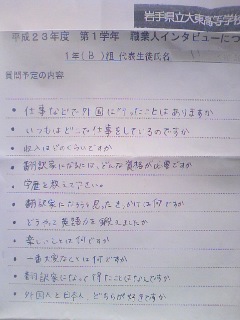 岩手県立大東高等学校
平成23年度 第1学年 職業人インタビューにつ
1年(B)組 代表生徒氏名
質問予定の内容
・仕事などで外国に行ったことはありますか
・いつもはどこで仕事をしているのですか
・収入はどのくらいですか
・翻訳家になるには、どんな資格が必要ですか
・学歴を教えて下さい。
・翻訳家になろうと思ったきっかけは何ですか
・どうやって英語力を鍛えましたか
・楽しいことは何ですか
・一番大変なことは何ですか
・翻訳家になって得たことはなんですか
・外国人と日本人、どちらが好きですか